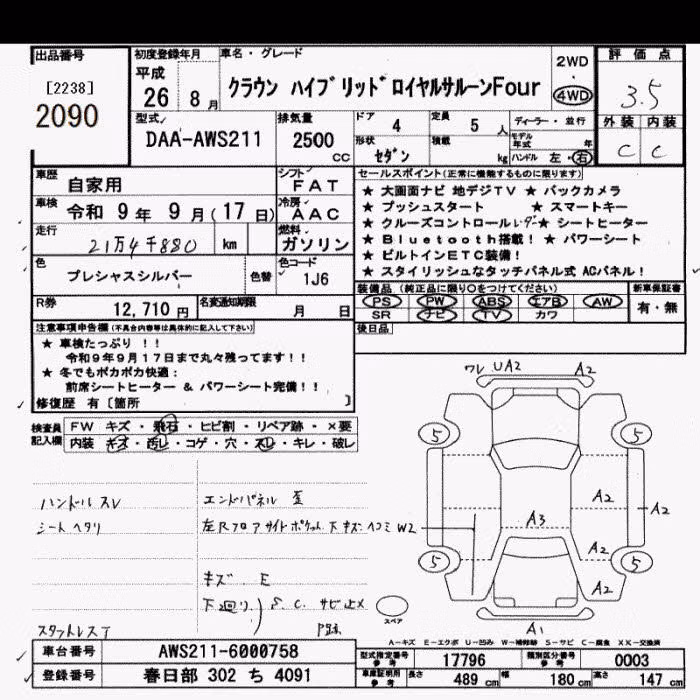 出品番号 初度登録年月 車名・グレード 評価点
[2238] 2090
平成 26 8月 クラウン ハイブリッド ロイヤルサルーンFour 2WD 4WD 3.5
型式 DAA-AWS211 排気量 2500 cc ドア 4 定員 5人 ディーラー・並行 外装 内装
形状 セダン 積載 kg モデル年式 年 ハンドル 左・右 C C
車歴 自家用 シフト FAT セールスポイント(正常に機能するものに限ります)
車検 令和 9年 9月(17日) 冷房 AAC
走行 21万4千880 km 燃料 ガソリン
色 プレシャスシルバー 色替 色コード 1J6
★ 大画面ナビ 地デジTV ★ バックカメラ
★ プッシュスタート ★ スマートキー
★ クルーズコントロール レーダー ★ シートヒーター
★ Bluetooth搭載! ★ パワーシート
★ ビルトインETC装備!
★ スタイリッシュなタッチパネル式 ACパネル!
R券 12,710円 名変通知期限 月 日
装備品(純正品に限り○をつけてください) 新車保証書
PS PW ABS エアB AW 有・無
SR ナビ TV カワ
後日品
注意事項申告欄(不具合内容等は具体的に記入して下さい)
★ 車検たっぷり!!
令和9年9月17日まで丸々残ってます!!
★ 冬でもポカポカ快適:
前席シートヒーター & パワーシート完備!!
修復歴 有〔箇所 〕
検査員記入欄 FW キズ・飛石・ヒビ割・リペア跡・×要
内装 キズ・汚レ・コゲ・穴・スレ・キレ・破レ
ワレ UA2 A2
5 5
A2 A2
A3
W2
A2
5 5
A2
A1
スペア
ハンドルスレ エンドパネル 歪
シートヘタリ 左Rフロア サイドポケット 下キズ・ヘコミ
キズ E
下廻り) S. C. サビ止メ
スタッドレス
A-キズ E-エクボ U-凹み W-補修跡 S-サビ C-腐食 XX-交換済
車台番号 AWS211-6000758 型式指定番号 参考 17796 類別区分番号 参考 0003
登録番号 春日部 302 ち 4091 車庫証明用 参考 長さ 489 cm 幅 180 cm 高さ 147 cm